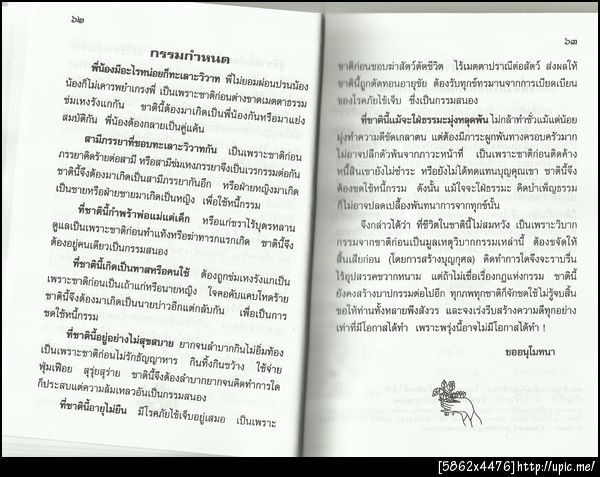 ๖๒
กรรมกำหนด
พี่น้องมีอะไรหน่อยก็ทะเลาะวิวาท พี่ไม่ยอมผ่อนปรนน้อง
น้องก็ไม่เคารพยำเกรงพี่ เป็นเพราะชาติก่อนต่างขาดเมตตาธรรม
ข่มเหงรังแกกัน ชาตินี้ต้องมาเกิดเป็นพี่น้องกันหรือมาแย่ง
สมบัติกัน พี่น้องต้องกลายเป็นคู่แค้น
สามีภรรยาที่ชอบทะเลาะวิวาทกัน เป็นเพราะชาติก่อน
ภรรยาคิดร้ายต่อสามี หรือสามีข่มเหงภรรยาจึงเป็นเวรกรรมต่อกัน
ชาตินี้จึงต้องมาเป็นสามีภรรยากันอีก หรือฝ่ายหญิงมาเกิด
เป็นชายหรือฝ่ายชายมาเกิดเป็นหญิง เพื่อใช้หนี้กรรม
ที่ชาตินี้กำพร้าพ่อแม่แต่เด็ก หรือแก่ชราไร้บุตรหลาน
ดูแลเป็นเพราะชาติก่อนทำแท้งหรือฆ่าทารกแรกเกิด ชาตินี้จึง
ต้องอยู่คนเดียวเป็นกรรมสนอง
ที่ชาตินี้เกิดเป็นทาสหรือคนใช้ ต้องถูกข่มเหงรังแกเป็น
เพราะชาติก่อน เป็นเถ้าแก่หรือนายหญิง ใจคอคับแคบโหดร้าย
ชาตินี้จึงต้องมาเกิดเป็นนายบ่าวอีกแต่กลับกัน เพื่อเป็นการ
ชดใช้หนี้กรรม
ที่ชาตินี้อยู่อย่างไม่สุขสบาย ยากจนลำบากกินไม่อิ่มท้อง
เป็นเพราะชาติก่อนไม่รักธัญญาหาร กินทิ้งกินขว้าง ใช้จ่าย
ฟุ่มเฟือย สุรุ่ยสุร่าย ชาตินี้จึงต้องลำบากยากจนคิดทำการใด
ก็ประสบแต่ความล้มเหลวอันเป็นกรรมสนอง
ที่ชาตินี้อายุไม่ยืน มีโรคภัยไข้เจ็บอยู่เสมอ เป็นเพราะ
๖๓
ชาติก่อนชอบฆ่าสัตว์ตัดชีวิต ไร้เมตตาปราณีต่อสัตว์ ส่งผลให้
ชาตินี้ถูกตัดทอนอายุขัย ต้องรับทุกข์ทรมานจากการเบียดเบียน
ของโรคภัยไข้เจ็บ ซึ่งเป็นกรรมสนอง
ที่ชาตินี้แม้จะใฝ่ธรรมะมุ่งหลุดพ้น ไม่กล้าทำชั่วแม้แต่น้อย
มุ่งทำความดีขัดเกลาตน แต่ต้องมีภาระผูกพันทางครอบครัวมาก
ไม่อาจปลีกตัวพ้นจากภาวะหน้าที่ เป็นเพราะชาติก่อนติดค้าง
หนี้สินเขายังไม่ชำระ หรือยังไม่ได้ทดแทนบุญคุณเขา ชาตินี้จึง
ต้องชดใช้หนี้กรรม ดังนั้น แม้ใจจะใฝ่ธรรมะ คิดบำเพ็ญธรรม
ก็ไม่อาจปลดเปลื้องพันทนาการจากทุกข์นั้น
จึงกล่าวได้ว่า ที่ชีวิตในชาตินี้ไม่สมหวัง เป็นเพราะวิบาก
กรรมจากชาติก่อนเป็นมูลเหตุวิบากกรรมเหล่านี้ ต้องขจัดให้
สิ้นเสียก่อน (โดยการสร้างบุญกุศล) คิดทำการใดจึงจะราบรื่น
ไร้อุปสรรคขวากหนาม แต่ถ้าไม่เชื่อเรื่องกฎแห่งกรรม ชาตินี้
ยังคงสร้างบาปกรรมต่อไปอีก ทุกภพทุกชาติก็จักชดใช้ไม่รู้จบสิ้น
ขอให้ท่านทั้งหลายพึงสังวร และจงเร่งรีบสร้างความดีทุกอย่าง
เท่าที่มีโอกาสได้ทำ เพราะพรุ่งนี้อาจไม่มีโอกาสได้ทำ !
ขออนุโมทนา
[5862x4476]http://upic.me/